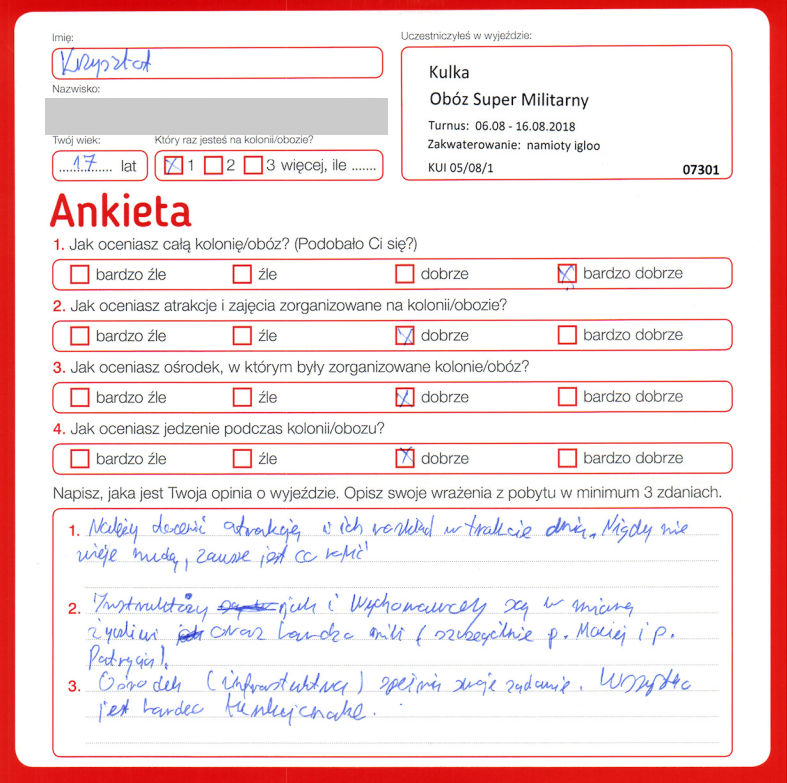 Imię:
Krzysztof
Nazwisko:
Twój wiek:
17 lat
Który raz jesteś na kolonii/obozie?
1 2 3 więcej, ile .......
Uczestniczyłeś w wyjeździe:
Kulka
Obóz Super Militarny
Turnus: 06.08 - 16.08.2018
Zakwaterowanie: namioty igloo
KUI 05/08/1 07301
Ankieta
1. Jak oceniasz całą kolonię/obóz? (Podobało Ci się?)
bardzo źle źle dobrze bardzo dobrze
2. Jak oceniasz atrakcje i zajęcia zorganizowane na kolonii/obozie?
bardzo źle źle dobrze bardzo dobrze
3. Jak oceniasz ośrodek, w którym były zorganizowane kolonie/obóz?
bardzo źle źle dobrze bardzo dobrze
4. Jak oceniasz jedzenie podczas kolonii/obozu?
bardzo źle źle dobrze bardzo dobrze
Napisz, jaka jest Twoja opinia o wyjeździe. Opisz swoje wrażenia z pobytu w minimum 3 zdaniach.
1. Należy docenić atrakcje i ich rozkład w trakcie dnia. Nigdy nie
wieje nudą, zawsze jest co robić
2. Instruktorzy jak i Wychowawcy są w miarę
życzliwi oraz bardzo mili (szczególnie p. Maciej i p.
Patrycja).
3. Ośrodek (infrastruktura) spełnia swoje zadanie. Wszystko
jest bardzo funkcjonalne.